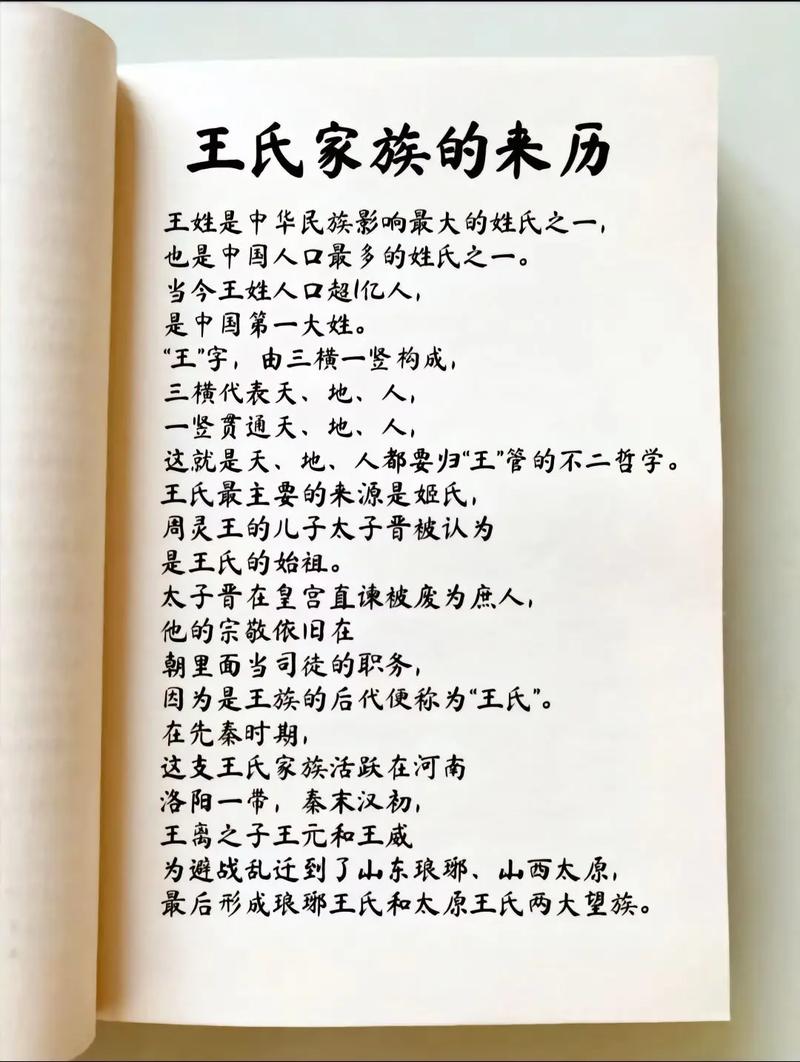 王氏家族的来历
王姓是中华民族影响最大的姓氏之一，
也是中国人口最多的姓氏之一。
当今王姓人口超1亿人，
是中国第一大姓。
“王”字，由三横一竖构成，
三横代表天、地、人，
一竖贯通天、地、人，
这就是天、地、人都要归“王”管的不二哲学。
王氏最主要的来源是姬氏，
周灵王的儿子太子晋被认为
是王氏的始祖。
太子晋在皇宫直谏被废为庶人，
他的宗敬依旧在
朝里面当司徒的职务，
因为是王族的后代便称为“王氏”。
在先秦时期，
这支王氏家族活跃在河南
洛阳一带，秦末汉初，
王离之子王元和王威
为避战乱迁到了山东琅琊、山西太原，
最后形成琅琊王氏和太原王氏两大望族。